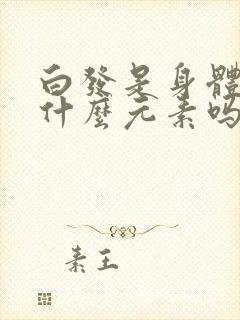 白發是身體
什麼元素嗎
素王